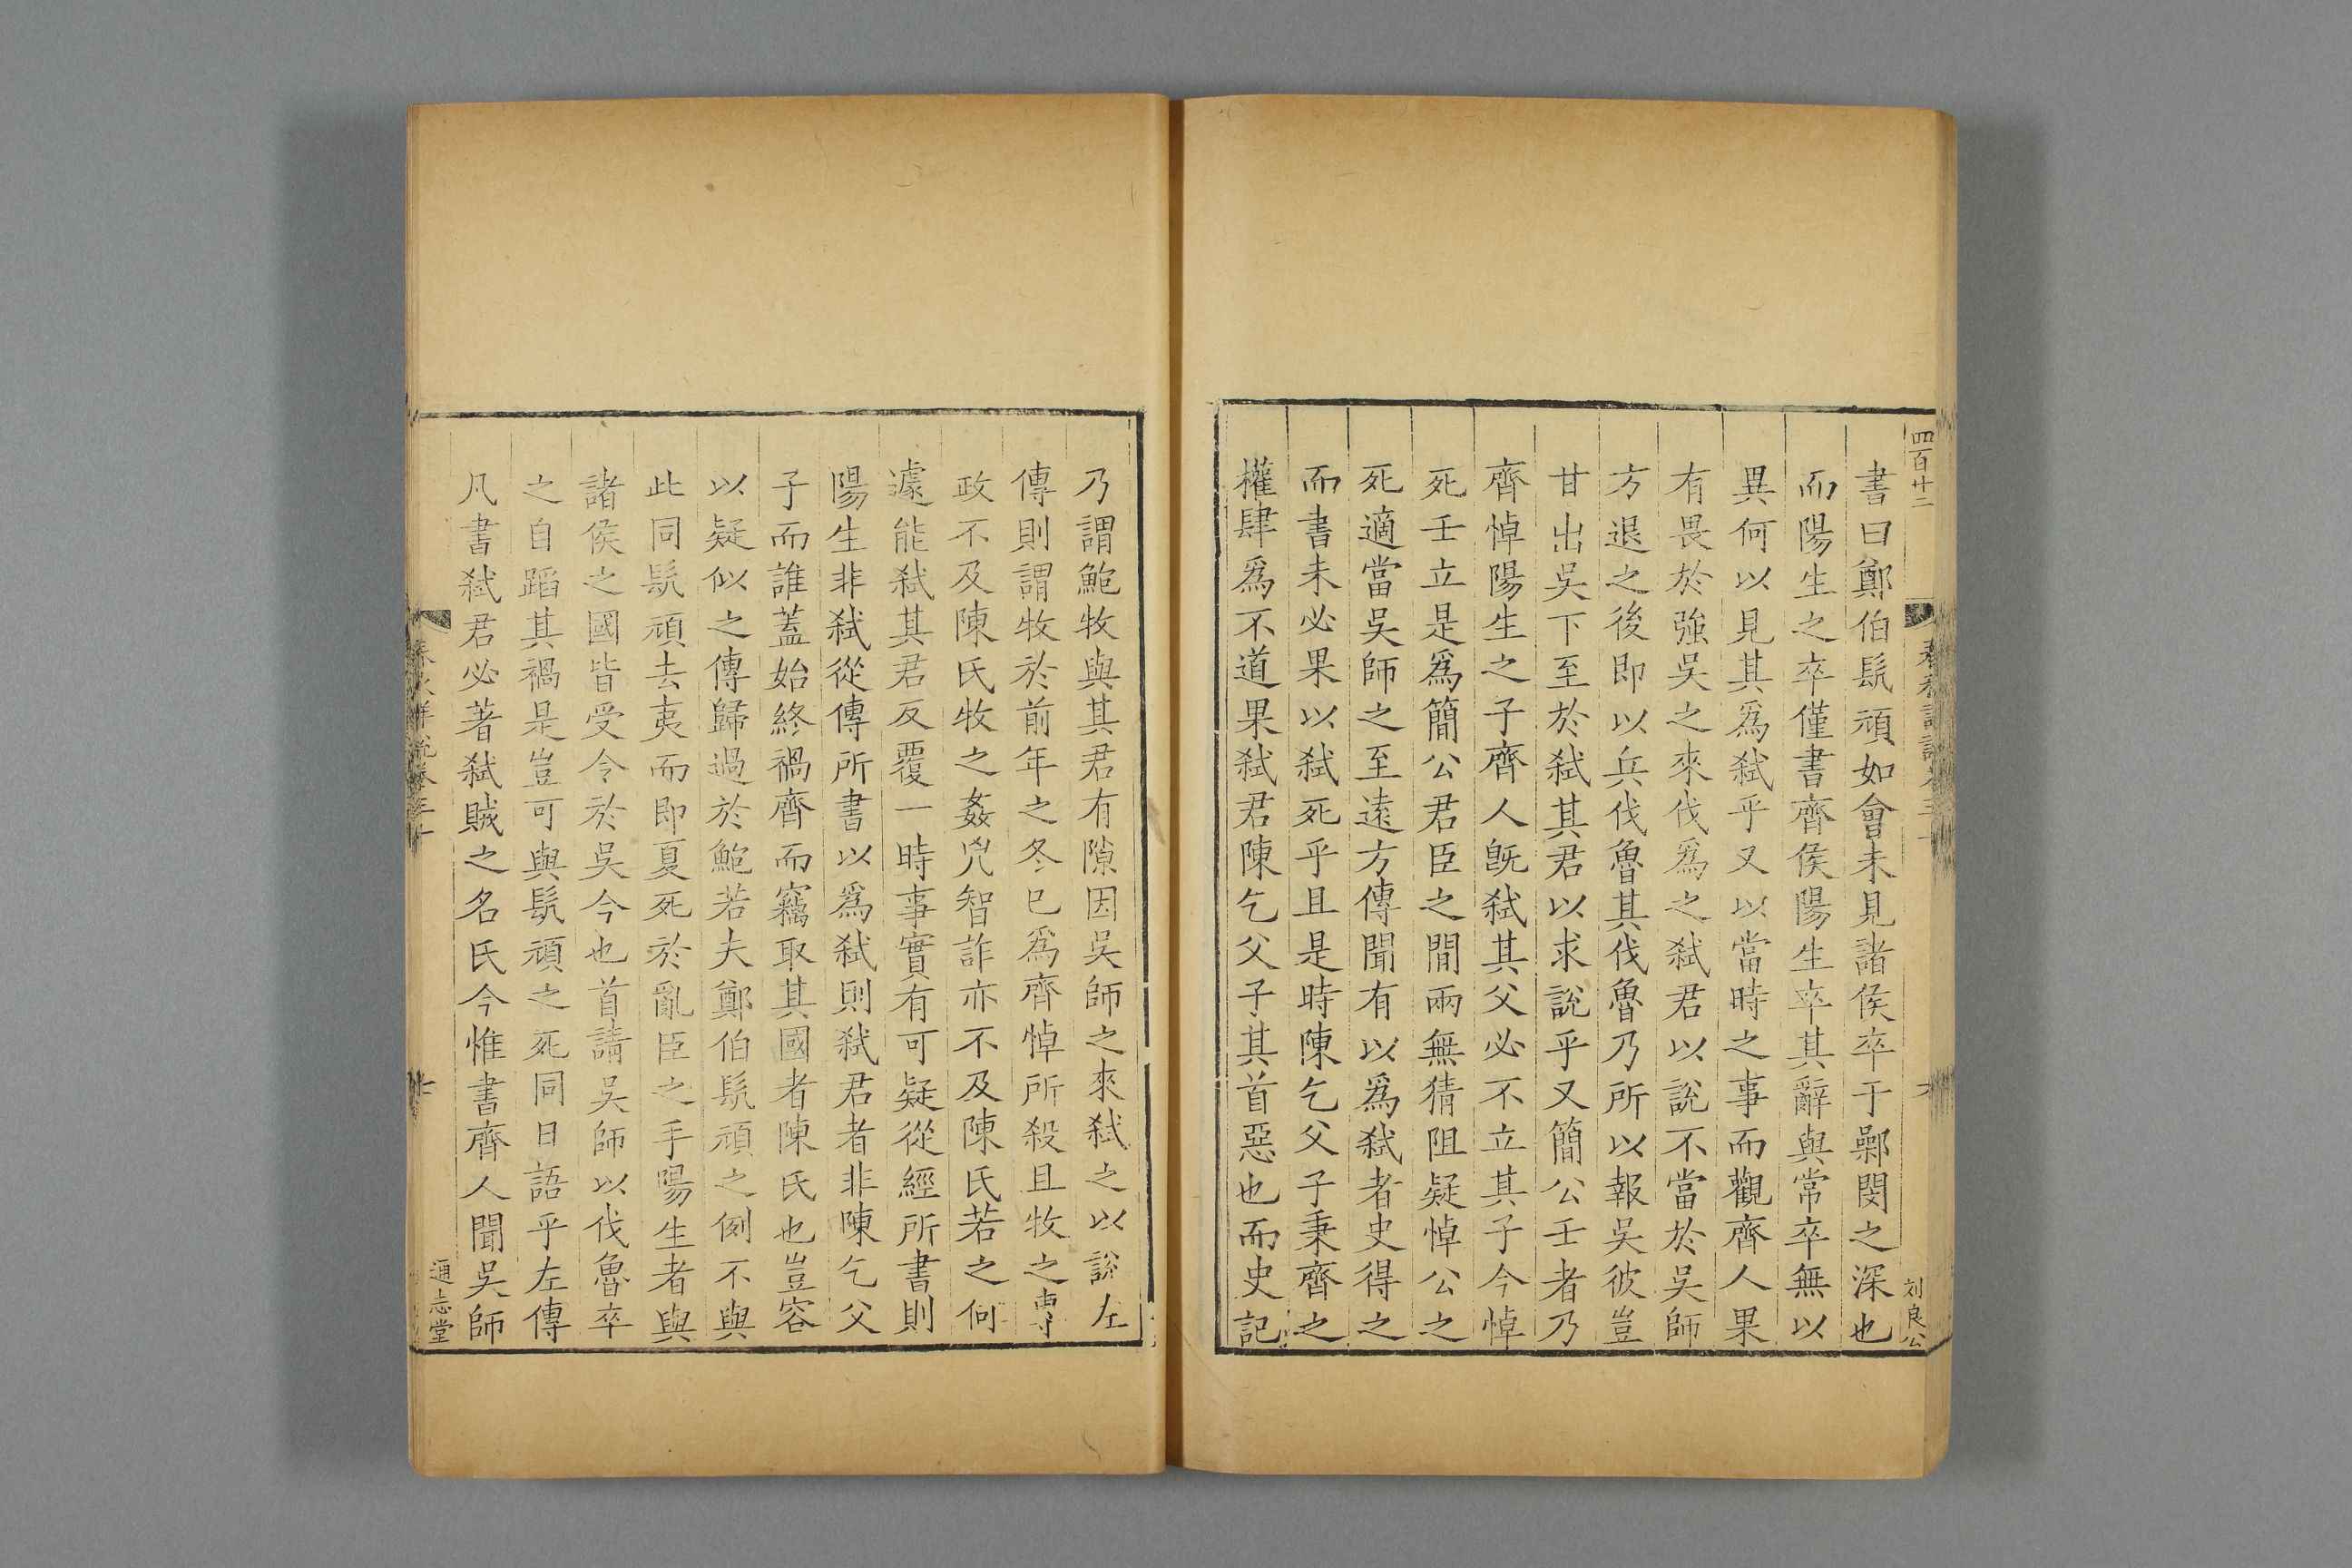 四百廿二
書曰鄭伯髡頑如會未見諸侯卒于鄵閔之深也
而陽生之卒僅書齊侯陽生卒其辭與常卒無以
異何以見其爲弑乎又以當時之事而觀齊人果
有畏於強吳之來伐爲之弑君以說不當於吳師
方退之後即以兵伐魯其伐魯乃所以報吳彼豈
甘出吳下至於弑其君以求說乎又簡公壬者乃
齊悼陽生之子齊人旣弑其父必不立其子今悼
死壬立是爲簡公君臣之間兩無猜阻疑悼公之
死適當吳師之至遠方傳聞有以爲弑者史得之
而書未必果以弑死乎且是時陳乞父子秉齊之
權肆爲不道果弑君陳乞父子其首惡也而史記
刘良公
乃謂鮑牧與其君有隙因吳師之來弑之以說左
傳則謂牧於前年之冬已爲齊悼所殺且牧之專
政不及陳氏牧之姦兇智詐亦不及陳氏若之何
遽能弑其君反覆一時事實有可疑從經所書則
陽生非弑從傳所書以爲弑則弑君者非陳乞父
子而誰蓋始終禍齊而竊取其國者陳氏也豈容
以疑似之傳歸過於鮑若夫鄭伯髡頑之例不與
此同髡頑去夷而即夏死於亂臣之手陽生者與
諸侯之國皆受令於吳今也首請吳師以伐魯卒
之自蹈其禍是豈可與髡頑之死同日語乎左傳
凡書弑君必著弑賊之名氏今惟書齊人聞吳師
春秋詳說卷三十
通志堂